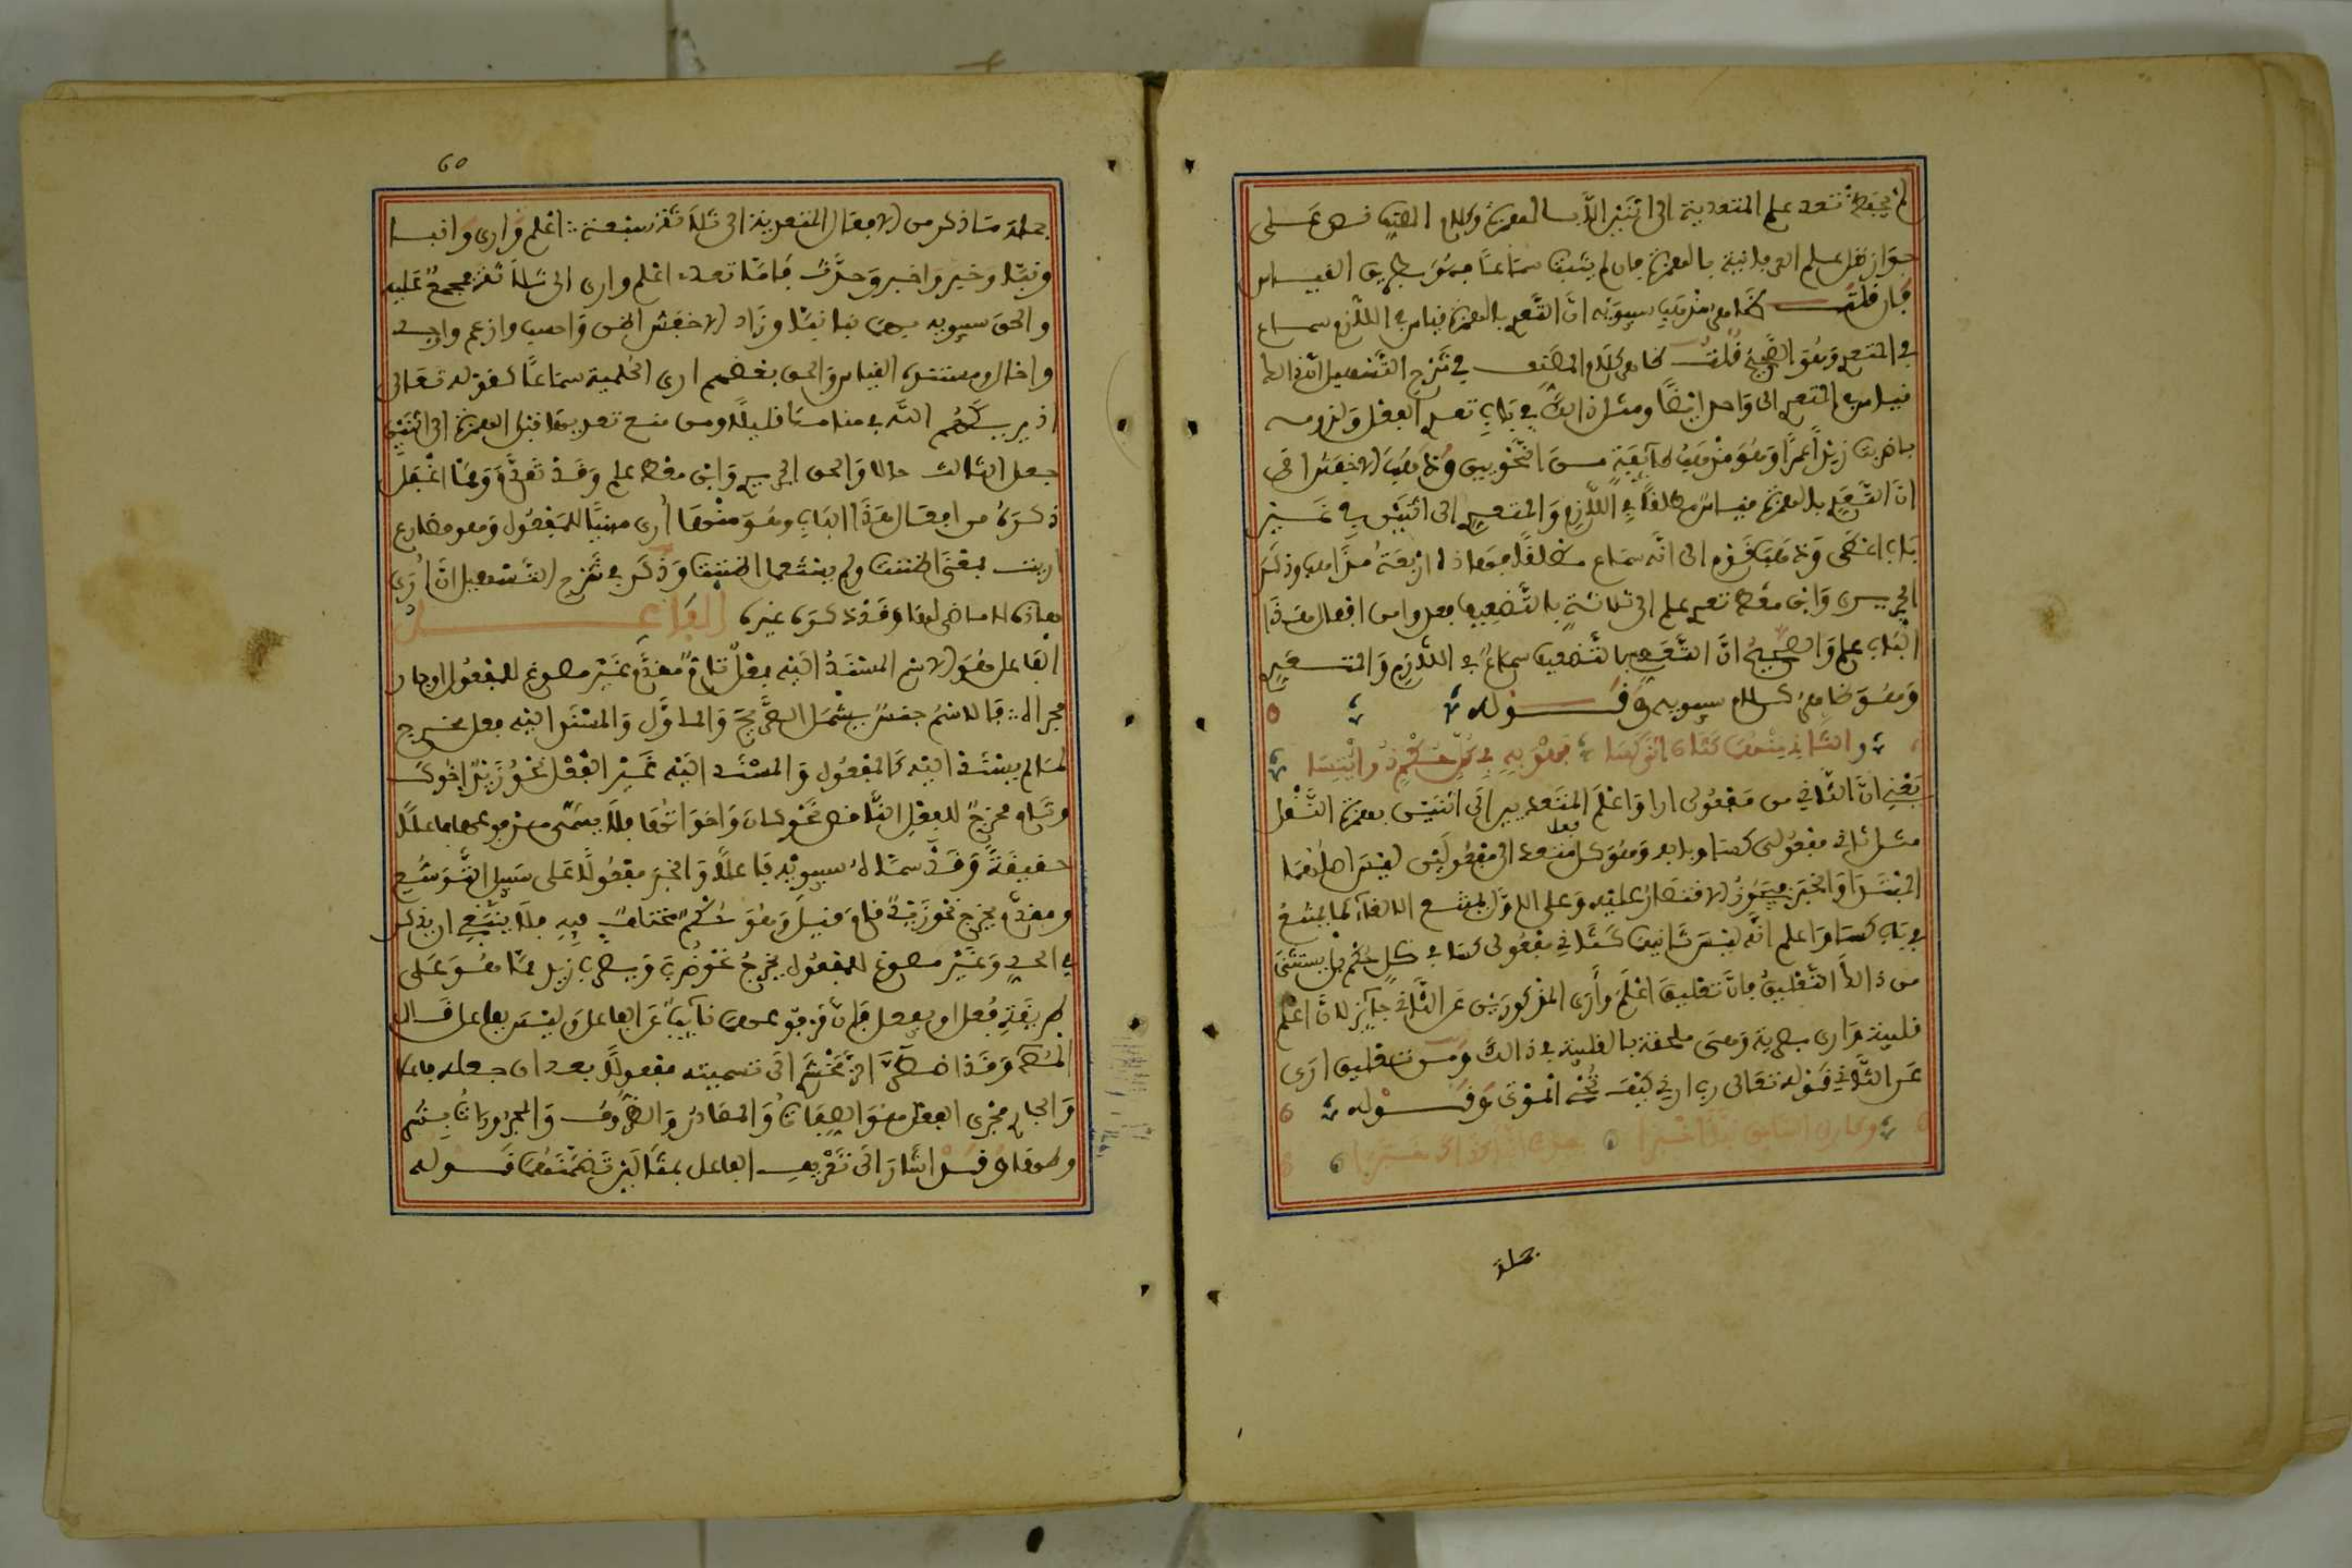 لم يحفظ تعدي علم المتعدية الى اثنين الا بالهمزة وكلام المصنف نص على
جواز نقل علم العرفانية بالهمزة فان لم يثبت سماعا فهو بطريق القياس
فان قلت كتاب مذهب سيبويه ان التعدي بالهمزة قياس في اللازم سماع
في المتعدي وهو الصحيح قلت ظاهر كلام المصنف في شرح التسهيل انه
قياس في المتعدي الى واحد ايضا ومثل ذلك في باب تعدي الفعل ولزومه
باضربت زيدا عمرا وهو مذهب طائفة من النحويين وذهب الاخفش الى
ان التعدي بالهمزة قياس مطلقا في اللازم والمتعدي الى اثنين في غير
باب اعطى وذهب قوم الى انه سماع مطلقا فهذه اربعة مذاهب وذكر
الحريري وابن معط تعدي علم الى ثلاثة بالتضعيف فعدوا من افعال هذا
الباب علم والصحيح ان التعدي بالتضعيف سماع في اللازم والمتعدي
وهو ظاهر كلام سيبويه وقوله
والثاني منهما كثان اثني كسا فهو به في كل حكم ذو ائتسا
يعني ان الثاني من مفعولي ارا واعلم المتعديين الى اثنين بهمزة النقل
مثل ثاني مفعولي كسا وبابه وهو كل فعل متعد الى مفعولين ليس اصلهما
المبتدا والخبر فيجوز الاقتصار عليه وعلى الاول ويمتنع الالغاء كما يمتنع
في باب كسا واعلم انه ليس ثانيهما كثاني مفعولي كسا في كل حكم بل يستثنى
من ذلك التعليق فان تعليق اعلم وأرى المذكورين عن الثاني جائز لان اعلم
قلبية وارى بصرية وهي ملحقة بالقلبية في ذالك ومن تعليق ارى
عن الثاني قوله تعالى رب ارني كيف تحي الموتى وقوله
وكارى السابق نبا اخبرا حدث انبا كذاك خبرا
جملة
60
جملة ما ذكر من الافعال المتعدية الى ثلاثة سبعة اعلم وارى وانبا
ونبا وخبر واخبر وحدث فاما تعدي اعلم وارى الى ثلاثة فمجمع عليه
والحق سيبويه بهما نبا وزاد الاخفش اظن واحسب وازعم واوجد
واخال ومستنده القياس والحق بعضهم ارى الحلمية سماعا كقوله تعالى
اذ يريكهم الله في منامك قليلا ومن منع تعديها قبل الهمزة الى اثنين
جعل الثالث حالا والحق الحريري وابن معط علم وقد تقدم ومما اغفل
ذكره من افعال هذا الباب وهو منها أرى مبنيا للمفعول وهو مضارع
اريت بمعنى اظننت ولم ينطقوا اظننت وذكر في شرح التسهيل ان أرى
هاذه لا ماضي لها وقد ذكره غيره الفاعل
الفاعل هو الاسم المسند اليه فعل تام مقدم غير مصوغ للمفعول او جار
مجراه فالاسم جنس يشمل الصريح والماول والمسند اليه فعل مخرج
لما لم يسند اليه كالمفعول والمسند اليه غير الفعل نحو زيد اخوك
وتام مخرج للفعل الناقص نحو كان واخواتها فلا يسمى مرفوعها فاعلا
حقيقة وقد سماه سيبويه فاعلا والخبر مفعولا على سبيل التوسع
ومقدم يخرج نحو زيد قام قيل وهو حكم مختلف فيه فلا ينبغي ان يذكر
في الحد وغير مصوغ للمفعول يخرج نحو ضرب ويضرب زيد مما هو على
طريقة فعل او يفعل فان مرفوعهما نائب عن الفاعل وليس بفاعل قال
المص وقد اضطر الزمخشري الى تسميته مفعولا بعد ان جعله فاعلا
والجاري مجرى الفعل هو الصفات والمصادر والظروف والمجرورات بشر
وطها وقد اشار الى تعريف الفاعل بمثالين تضمنهما قوله